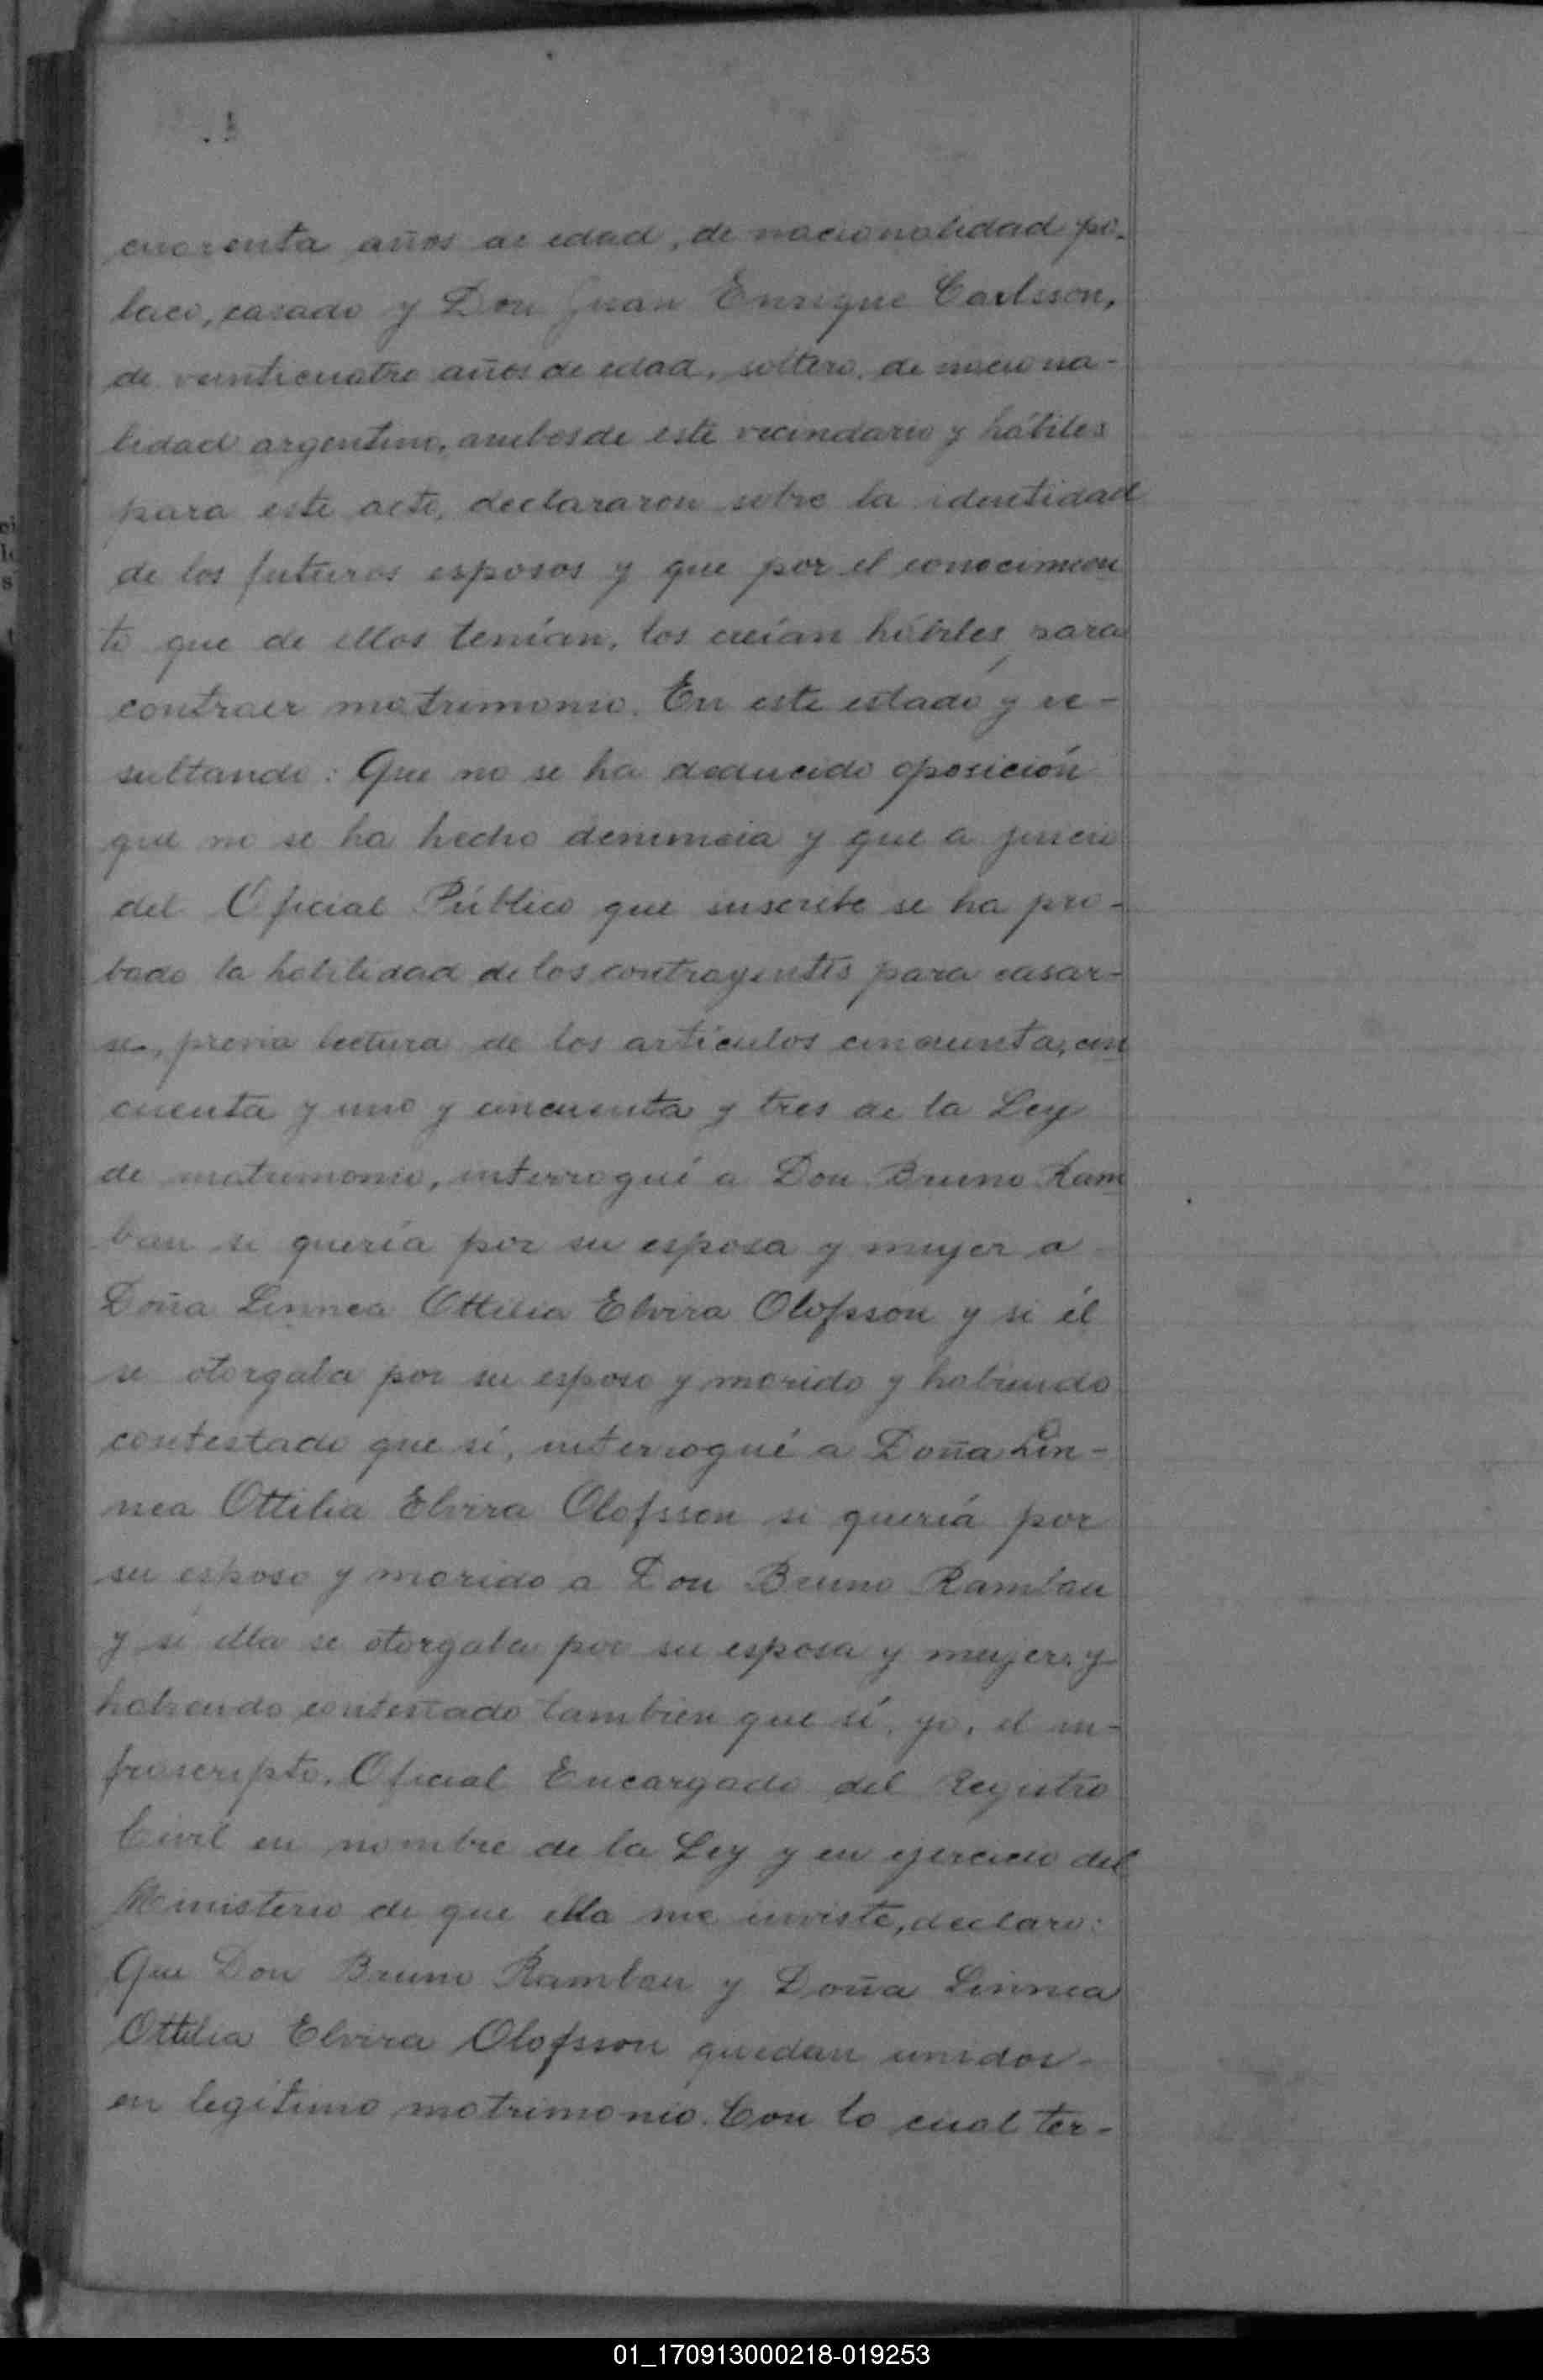 cuarenta años de edad, de nacionalidad po-
laco, casado y Don Juan Enrique Carlsson,
de veinticuatro años de edad, soltero, de naciona-
lidad argentino, ambos de este vecindario y hábiles
para este acto, declararon sobre la identidad
de los futuros esposos y que por el conocimien
to que de ellos tenían, los creían hábiles para
contraer matrimonio. En este estado y re-
sultando: Que no se ha deducido oposición
que no se ha hecho denuncia y que a juicio
del Oficial Público que suscribe se ha pro-
bado la habilidad de los contrayentes para casar-
se, previa lectura de los artículos cincuenta, cin
cuenta y uno y cincuenta y tres de la Ley
de matrimonio, interrogué a Don Bruno Ram
bau si quería por su esposa y mujer a
Doña Linnea Ottilia Elvira Olofsson y si él
se otorgaba por su esposo y marido y habiendo
contestado que sí, interrogué a Doña Lin-
nea Ottilia Elvira Olofsson si quería por
su esposo y marido a Don Bruno Rambau
y si ella se otorgaba por su esposa y mujer, y
habiendo contestado tambien que sí, yo, el in-
frascripto, Oficial Encargado del Registro
Civil en nombre de la Ley y en ejercicio del
Ministerio de que ella me inviste, declaro:
Que Don Bruno Rambau y Doña Linnea
Ottilia Elvira Olofsson quedan unidos
en legítimo matrimonio. Con lo cual ter-
01_170913000218-019253